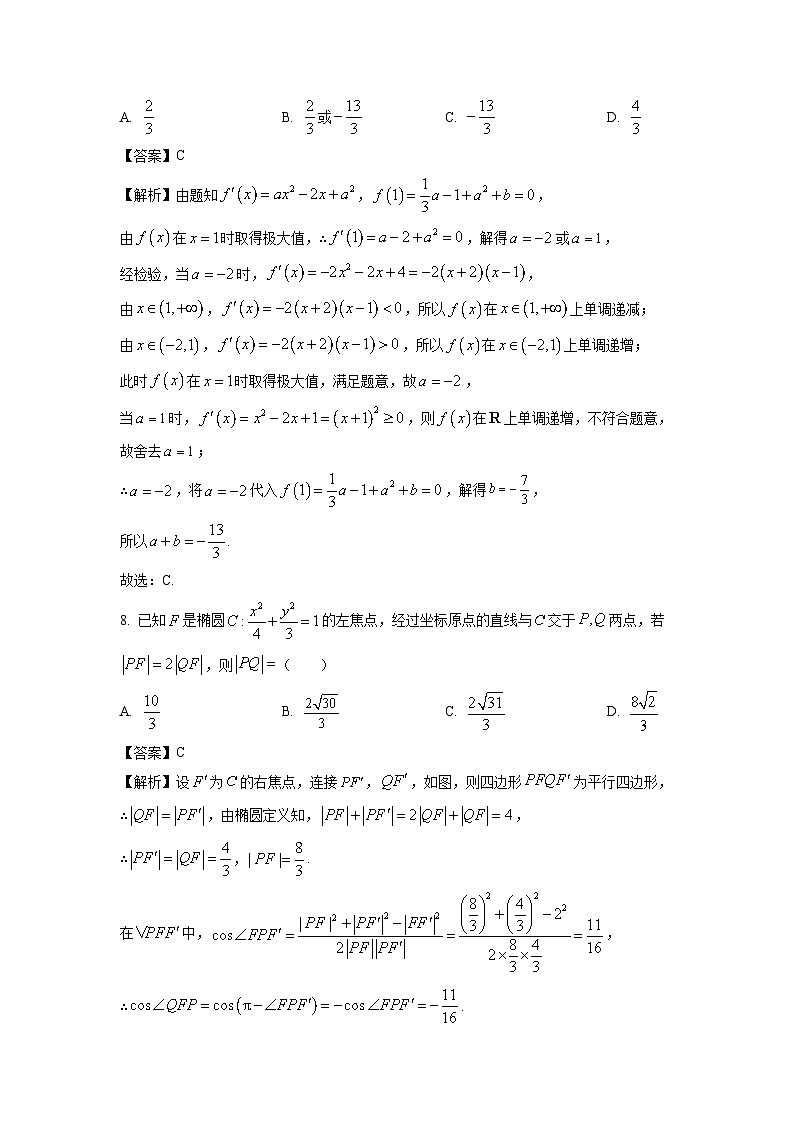 A. 2/3 B. 2/3或-13/3 C. -13/3 D. 4/3
【答案】C
【解析】由题知f′(x)=ax²-2x+a², f(1)=1/3a-1+a²+b=0,
由f(x)在x=1时取得极大值,∴f′(1)=a-2+a²=0,解得a=-2或a=1,
经检验,当a=-2时, f′(x)=-2x²-2x+4=-2(x+2)(x-1),
由x∈(1,+∞), f′(x)=-2(x+2)(x-1)<0,所以f(x)在x∈(1,+∞)上单调递减;
由x∈(-2,1), f′(x)=-2(x+2)(x-1)>0,所以f(x)在x∈(-2,1)上单调递增;
此时f(x)在x=1时取得极大值,满足题意,故a=-2,
当a=1时, f′(x)=x²-2x+1=(x+1)²≥0,则f(x)在R上单调递增,不符合题意,
故舍去a=1;
∴a=-2,将a=-2代入f(1)=1/3a-1+a²+b=0,解得b=-7/3,
所以a+b=-13/3.
故选:C.
8. 已知F是椭圆C:x²/4+y²/3=1的左焦点,经过坐标原点的直线与C交于P,Q两点,若
|PF|=2|QF|,则|PQ|=( )
A. 10/3 B. 2√30/3 C. 2√31/3 D. 8√2/3
【答案】C
【解析】设F′为C的右焦点,连接PF′,QF′,如图,则四边形PFQF′为平行四边形,
∴|QF|=|PF′|,由椭圆定义知,|PF|+|PF′|=2|QF|+|QF|=4,
∴|PF′|=|QF|=4/3,|PF|=8/3.
在▽PFF′中,cos∠FPF′=(|PF|²+|PF′|²-|FF′|²)/(2|PF||PF′|)=((8/3)²+(4/3)²-2²)/(2×8/3×4/3)=11/16,
∴cos∠QFP=cos(π-∠FPF′)=-cos∠FPF′=-11/16.